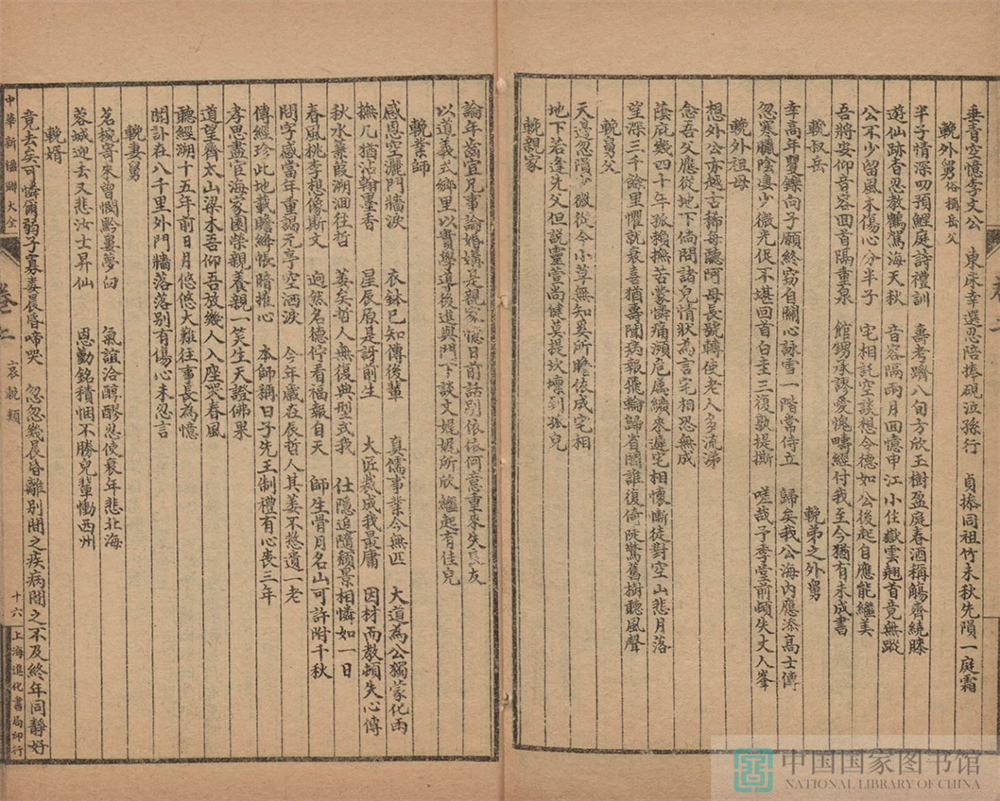 垂青空憶李文公 東床幸選忍陪捧硯泣孫行 貞捧同祖竹未秋先隕一庭霜
輓外舅俗稱岳父
半子情深叨預鯉庭詩禮訓 壽考躋八旬方欣玉樹盈庭春酒稱觴齊繞膝
遊仙跡杳忍教鶴駕海天秋 音容隔兩月回憶申江小住嶽雲翹首竟無蹤
公不少留風木傷心分半子 宅相託空談想今德如公後起自應能繼美
吾將安仰音容回首隔重泉 館甥承謬愛愧疇經付我至今猶有未成書
輓叔岳 輓弟之外舅
幸高年矍鑠向子願終窈自關心詠雪一階常侍立 歸矣我公海內應添高士傳
忽寒臘陰凄少微光促不堪回首白圭三復敦提撕 嗟哉子季堂前頓失丈人峯
輓外祖母
想外公亦越古稀母聽阿母長號轉使老人多流涕
念吾父應從地下倘問諸兒情狀為言宅相恐無成
蔭庇幾四十年孤損撫苦蒙憐痛瀕危屬纊來遲宅相懷慚徒對空山悲月落
望深三千餘里懼就衰喜猶壽聞病報飛輪歸省閭誰復倚陡驚舊樹聽風聲
輓舅父
天邊忽隕少微從今小草無知奚所瞻依成宅相
地下若逢先父但說靈萱尚健莫畏坎壈到孤兒
輓親家
論年齒宜兄事論婚媾是親家憶日前話別依依何意重來失友
以道義式鄉里以實學導後進與門下談文娓娓所欣繼起有佳兒
輓業師
感恩空灑門牆淚 衣鉢已知傳後輩 真儒事業今無匹 大道為公獨蒙化雨
撫几猶沾翰墨香 星辰原是謫前生 大匠裁成我最庸 因材而教頓失心傳
秋水蒹葭溯洄往哲 萎矣哲人無復典型式我 仕隱追隨頹景相憐如一日
春風桃李想像斯文 逈然名德佇看福報自天 師生骨月名山可許附千秋
問字感當年重謁元亭空洒淚 今年歲在辰哲人其萎不憖遺一老
傳經珍此地載瞻絳帳暗推心 本師稱曰子先王制禮有心喪三年
孝思盡官海家園榮親養親一笑生天證佛果
道望齊太山梁木吾仰吾放幾人入座哭春風
聽經溯十五年前日月悠悠大難往事長為憶
聞訃在八千里外門牆落落別有傷心未忍言
輓妻舅
茗椀寄來曾憫黔婁夢臼 氣誼洽醇醪忍使衰年悲北海
蓉城迎去又悲汝士昇仙 恩勤銘積悃不勝兒輩慟西州
輓婿
竟去矣可憐爾弱子寡妻晨昏啼哭 忽忽幾晨昏離別間之疾病間之不及終年同靜好
中華新疆聯大全
卷上
哀輓類
十六
上海進化書局印行
中国国家图书馆
NATIONAL LIBRARY OF CHINA